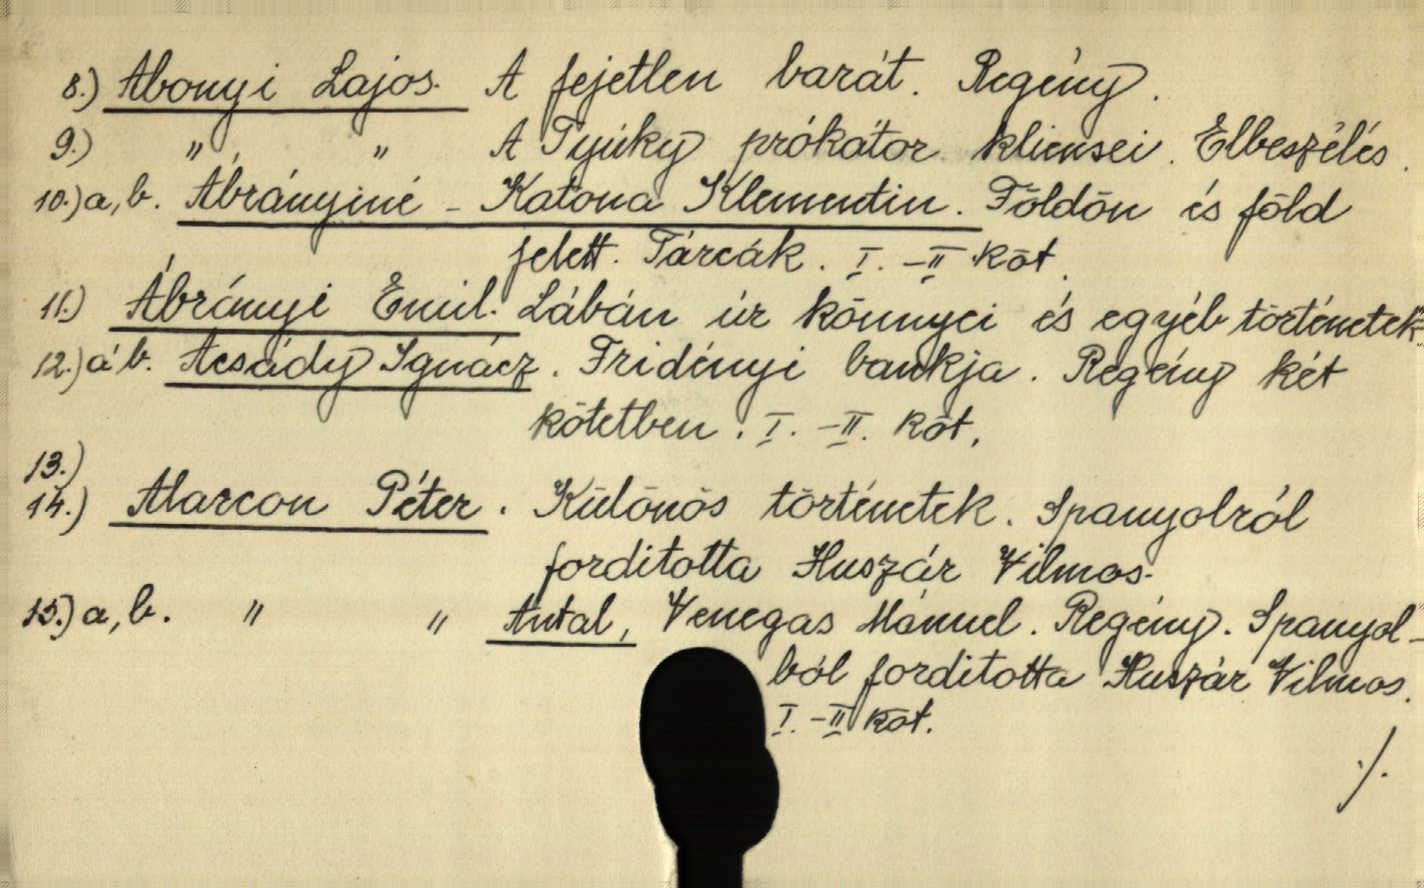 8.) Abonyi Lajos. A fejetlen barát. Regény.
9.) " " A Tyúky prókátor kliensei. Elbeszélés.
10.) a, b. Ábrányiné - Katona Klementin. Földön és föld
felett. Tárcák. I. - II. köt.
11.) Ábrányi Emil. Lábán úr könnyei és egyéb történetek.
12.) a b. Acsády Ignácz. Fridényi bankja. Regény két
kötetben. I. - II. köt.
13.)
14.) Alarcon Péter. Különös történetek. Spanyolról
forditotta Huszár Vilmos.
15.) a, b. " " Antal, Venegas Mánuel. Regény. Spanyol-
ból forditotta Huszár Vilmos.
I. - II köt.
./.